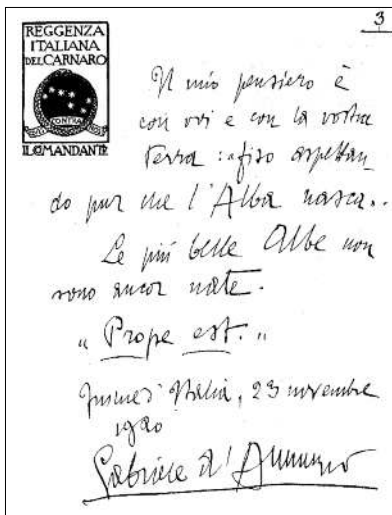 3
REGGENZA
ITALIANA
DEL CARNARO
CONTRA
IL COMANDANTE
Il mio pensiero è
con voi e con la vostra
terra: «fiso aspettan-
do pur che l'Alba nasca..
Le più belle Albe non
sono ancor nate.
"Prope est."
Fiume d'Italia, 23 novembre
1920
Gabriele d'Annunzio